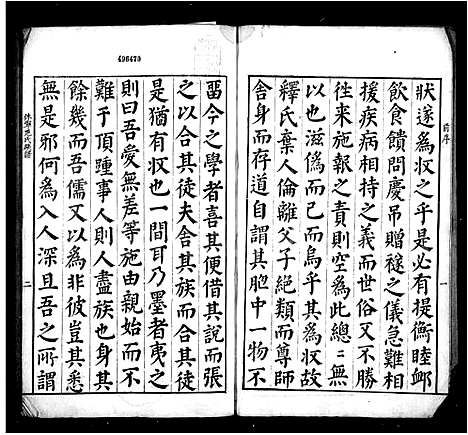 496470
前序
狀遂爲収之乎是必有提衡睦鄉
飲食饋問慶吊贈襚之儀急難相
援疾病相持之義而世俗又不勝
徃来施報之責則空爲此總總無
以也滋僞而已而烏乎其爲収故
釋氏棄人倫離父子絕類而尊師
舍身而存道自謂其胞中一物不
一
畱今之學者喜其便借其說而張
之以合其徒夫舍其徒以合其徒
是猶有収也一間耳乃墨者夷之
則曰吾愛無差等施由親始而不
難于頂踵事人則人盡族也身其
餘幾而吾儒又以爲非彼豈其悉
無是邪何爲入人深且吾之所謂
二